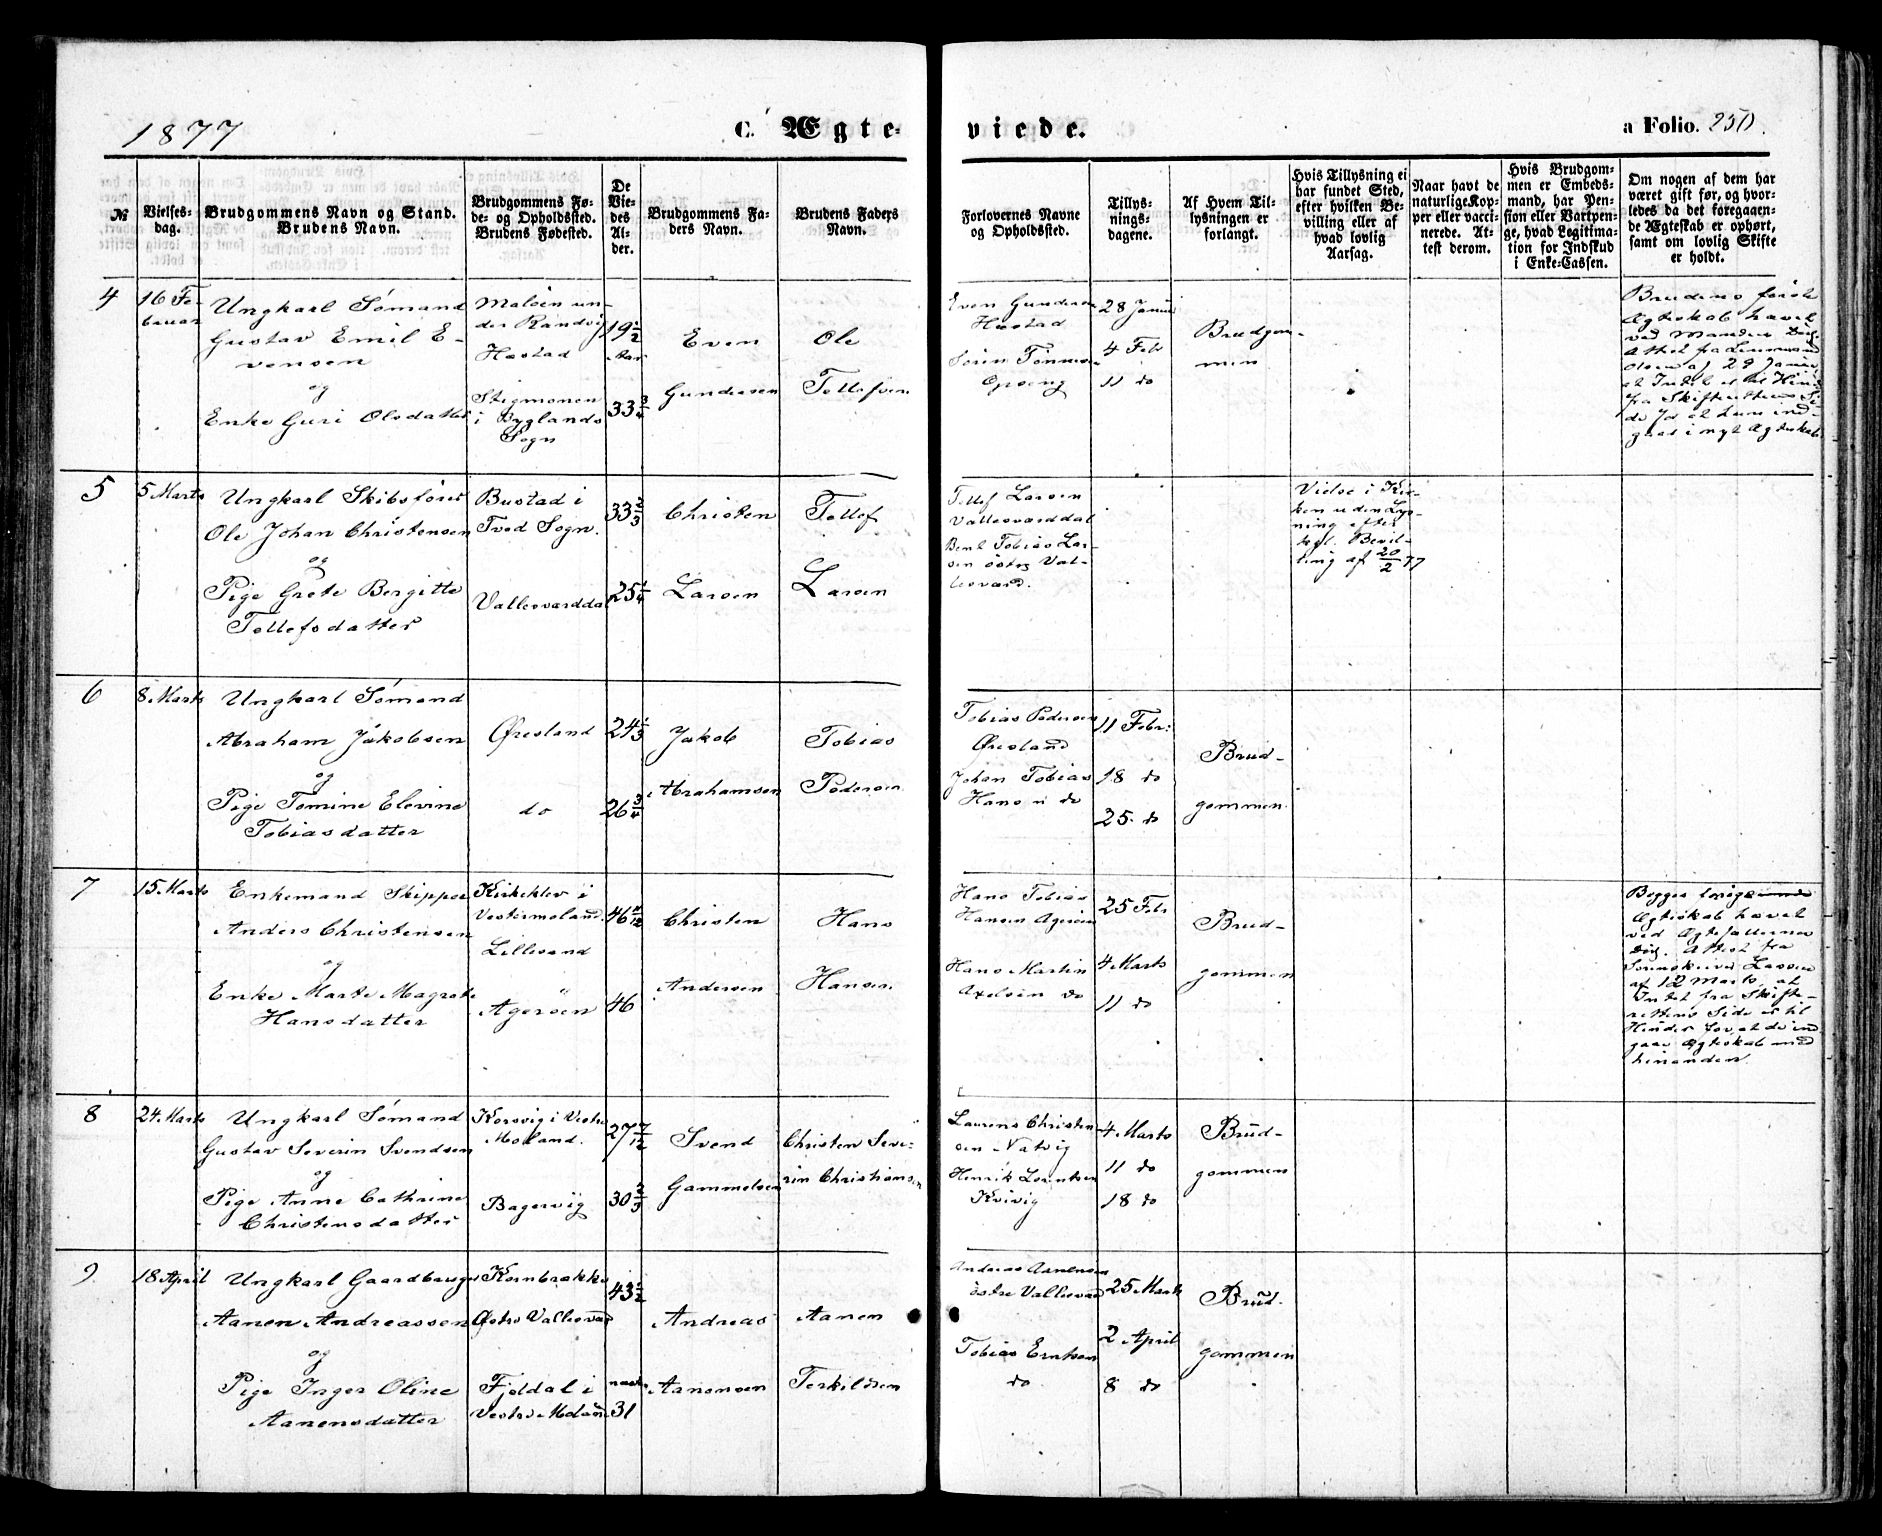 1877
C. Ægte-
viede.
a Folio. 250.
№
Vielses-
dag.
Brudgommens Navn og Stand.
Brudens Navn.
Brudgommens Fø-
de- og Opholdsted.
Brudens Fødested.
De
Vie-
des
Al-
der.
Brudgommens Fa-
ders Navn.
Brudens Faders
Navn.
Forlovernes Navne
og Opholdsted.
Tillys-
nings-
dagene.
Af Hvem Til-
lysningen er
forlangt.
Hvis Tillysning ei
har fundet Sted,
efter hvilken Be-
villing eller af
hvad lovlig
Aarsag.
Naar havt de
naturlige Kop-
per eller vacci-
nerede. At-
test derom.
Hvis Brudgom-
men er Embeds-
mand, har Pen-
sion eller Vartpen-
ge, hvad Legitima-
tion for Indskud
i Enke-Cassen.
Om nogen af dem har
været gift før, og hvor-
ledes da det foregaaen-
de Ægteskab er ophørt,
samt om lovlig Skifte
er holdt.
4
16 Fe-
bruar
Ungkarl Sømand
Gustav Emil E-
vensen
og
Enke Guri Olsdatter
Maløen un-
der Randvig
Hæstad
Stigmonen
i Byglands
Sogn
19 1/2
Aar
33 3/4
Even
Gundersen
Ole
Tellefsen
Even Gundersen
Hæstad
Søren Tønnesen
Opseng
28 Januar
4 Febr
11 do
Brudgom-
men
Brudens første
Ægteskab hævet
ved Mandens Død
Attest fra Lensmand
Olsen af 29 Januar
at Intet er til Hinder
fra Skifterettens Si-
de for at hun ind-
gaar i nyt Ægteskab.
5
5 Marts
Ungkarl Skibsfører
Ole Johan Christensen
og
Pige Grete Bergitte
Tellefsdatter
Bustad i
Tved Sogn.
Vallesværddal
33 2/3
25 1/4
Christen
Larsen
Tellef
Larsen
Tellef Larsen
Vallesværddal
Bent Tobias Lar-
sen østre Val-
lesværd.
Vielse i Kir-
ken uden Lys-
ning efter
kgl. Bevil-
ling af 20/2 77
6
8 Marts
Ungkarl Sømand
Abraham Jakobsen
og
Pige Tomine Elevine
Tobiasdatter
Øresland
do
24 1/3
26 3/4
Jakob
Abrahamsen
Tobias
Pedersen
Tobias Pedersen
Øresland
Johan Tobias
Hansen do
11 Febr:
18 do
25 do
Brud-
gommen
7
15 Marts
Enkemand Skipper
Anders Christensen
og
Enke Marte Magrete
Hansdatter
Kirkeklev i
Vestermoland.
Lillesand
Agerøen
46 11/12
46
Christen
Andersen
Hans
Hansen
Hans Tobias
Hansen Agerøen
Hans Martin
Axelsen do
25 Febr
4 Marts
11 do
Brud-
gommen
Begges forige
Ægteskab hævet
ved Ægtefællernes
Død. Attest fra
Sorenskriver Lassen
af 12 Marts at
Intet fra Skifte-
rettens Side er til
Hinder for at de ind
gaar Ægteskab med
hinanden.
8
24 Marts
Ungkarl Sømand
Gustav Severin Svendsen
og
Pige Anne Cathrine
Christensdatter
Korsvig i Vestre
Moland.
Bagervig
27 7/12
30 2/3
Svend
Gammelsen
Christen Seve-
rin Christiansen
Laurens Christen-
sen Natvig
Henrik Lorentsen
Kvivig
4 Marts
11 do
18 do
Brud-
gommen
9
18 April
Ungkarl Gaardbruger
Aanen Andreassen
og
Pige Inger Oline
Aanensdatter
Kornbrække
Østre Vallesværd
Fjeldal i
Vestre Moland
43 1/2
næsten
31
Andreas
Aanensen
Aanen
Terkildsen
Andreas Aanensen
østre Vallesværd
Tobias Erntsen
do
25 Marts
2 April
8 do
Brud-
gommen